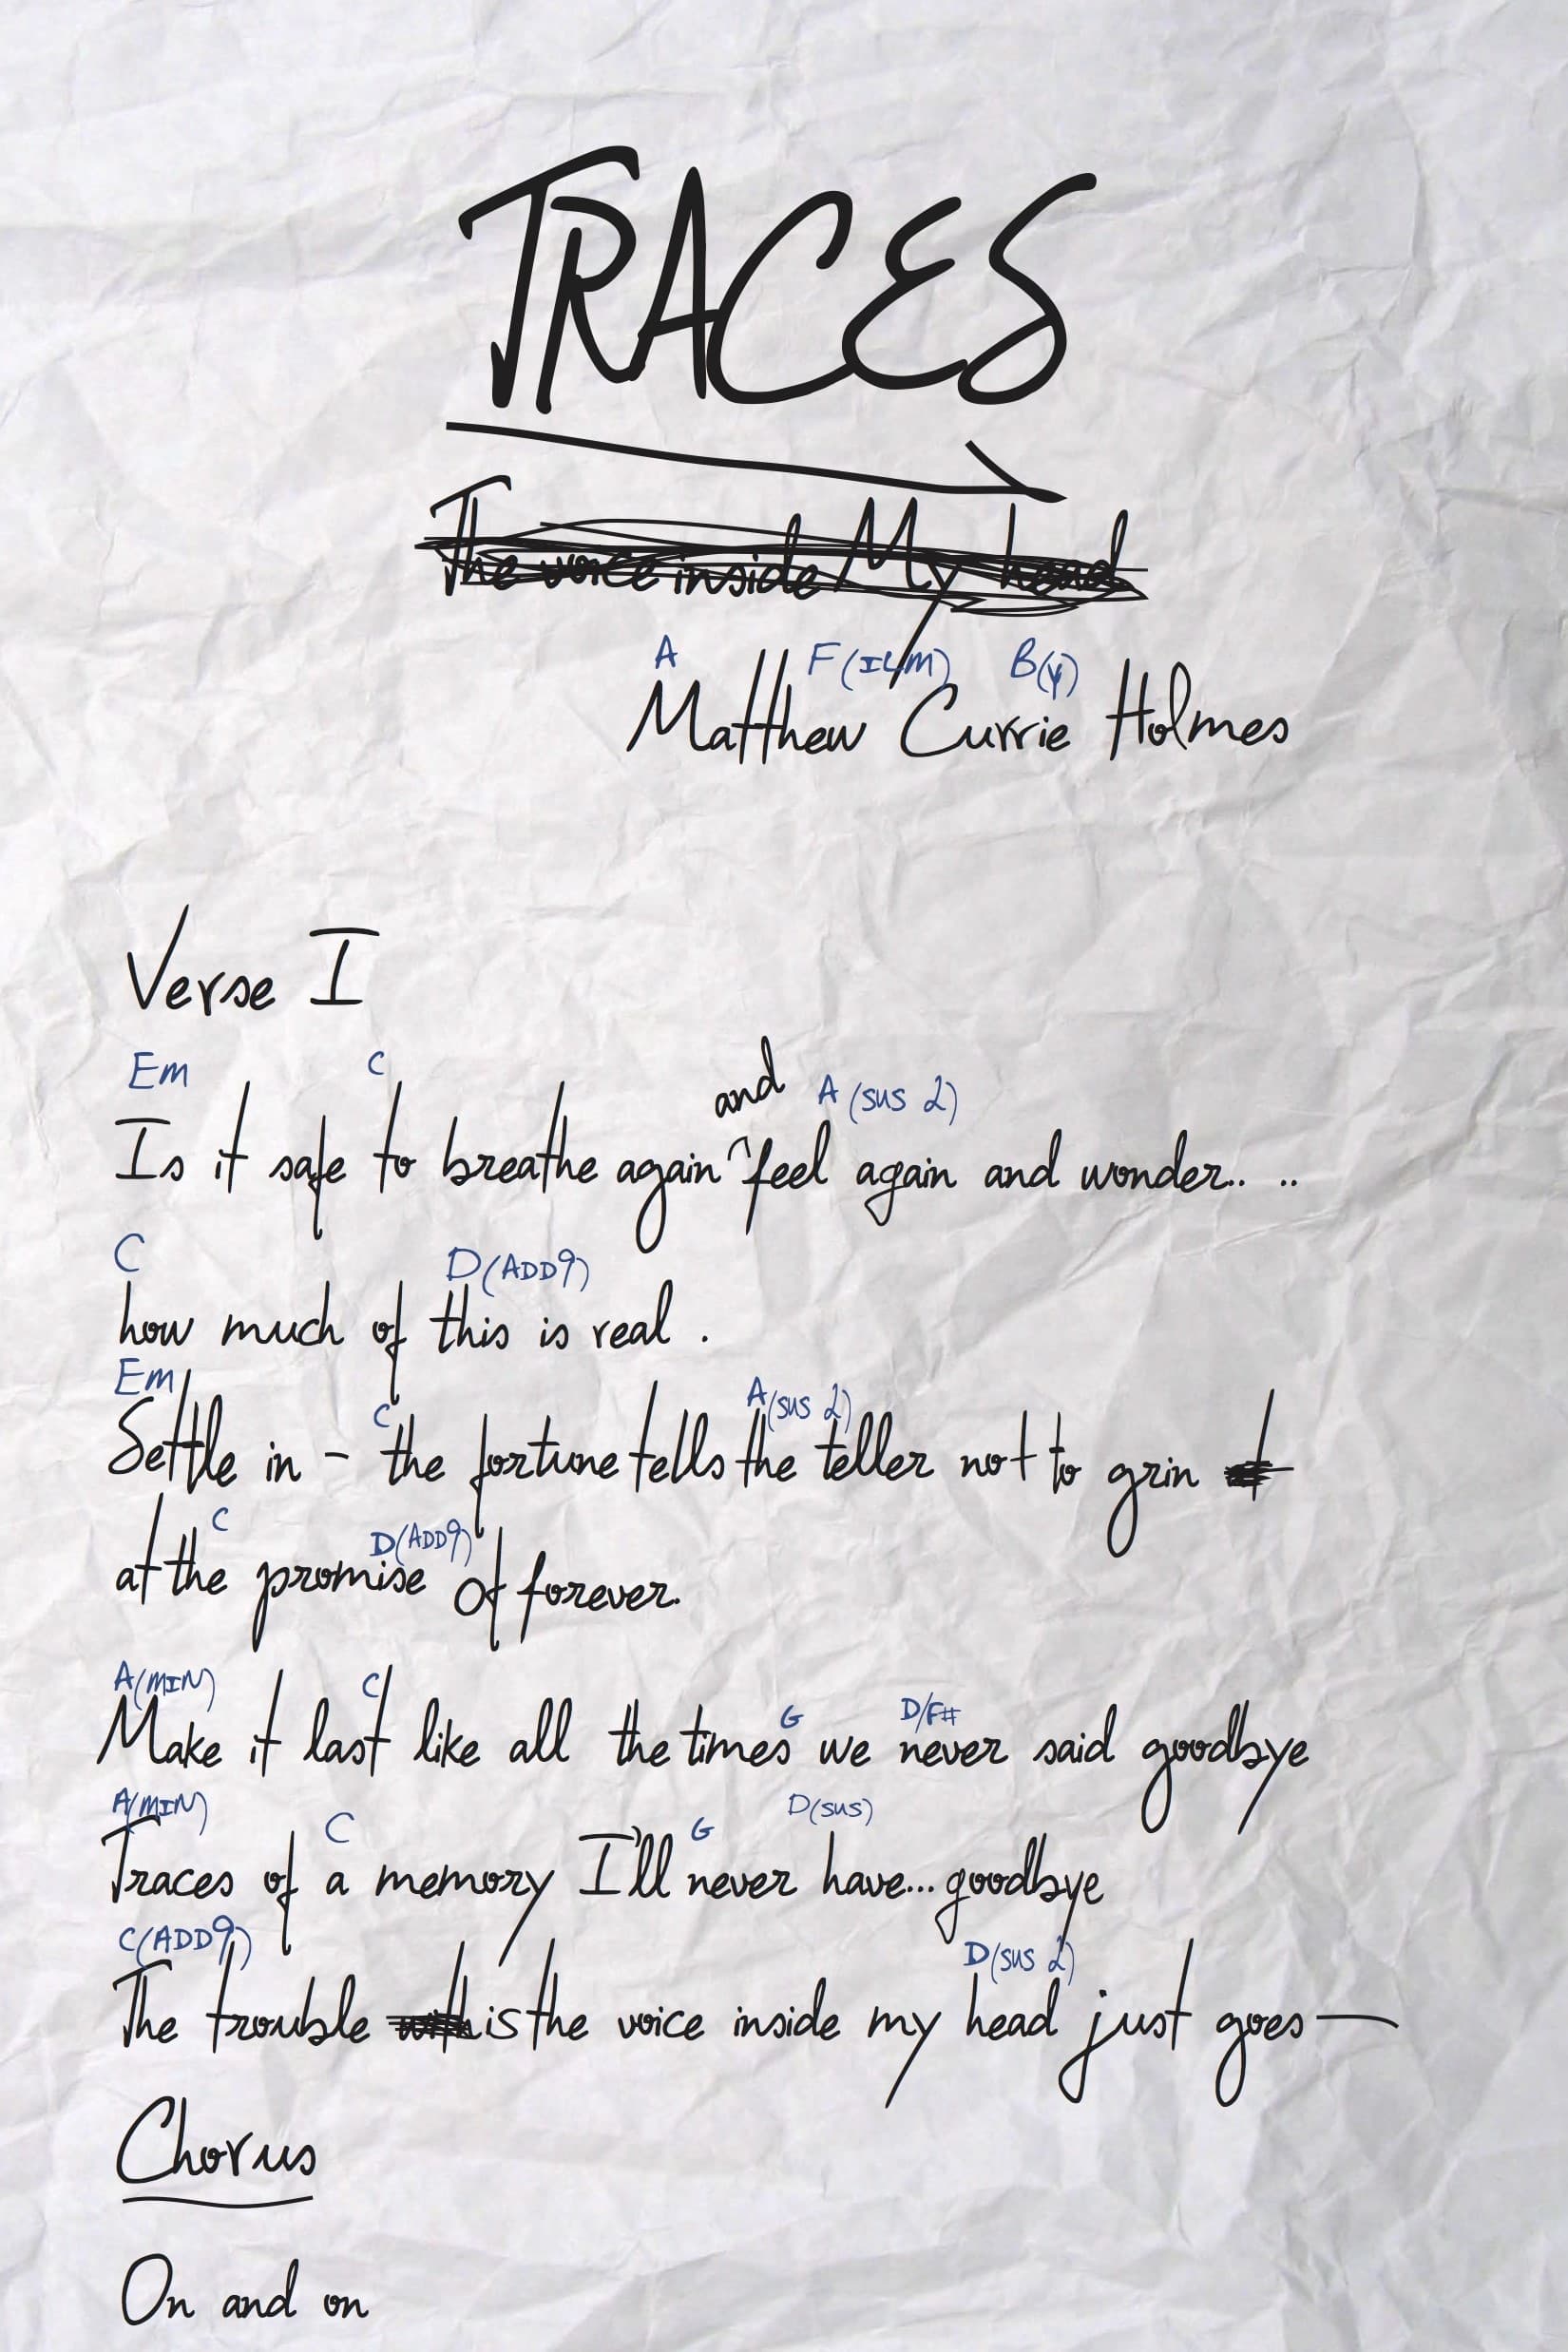 TRACES
The voice inside My head
A F(ILM) B(y)
Matthew Currie Holmes
Verse I
and
Em C A (sus 2)
Is it safe to breathe again ^ feel again and wonder.. ..
C D(ADD9)
how much of this is real .
Em C A(sus 2)
Settle in - the fortune tells the teller not to grin
C D(ADD9)
at the promise of forever.
A(MIN) C G D/F#
Make it last like all the times we never said goodbye
A(MIN) C G D(sus)
Traces of a memory I'll never have... goodbye
C(ADD9) D(sus 2)
The trouble with is the voice inside my head just goes—
Chorus
On and on